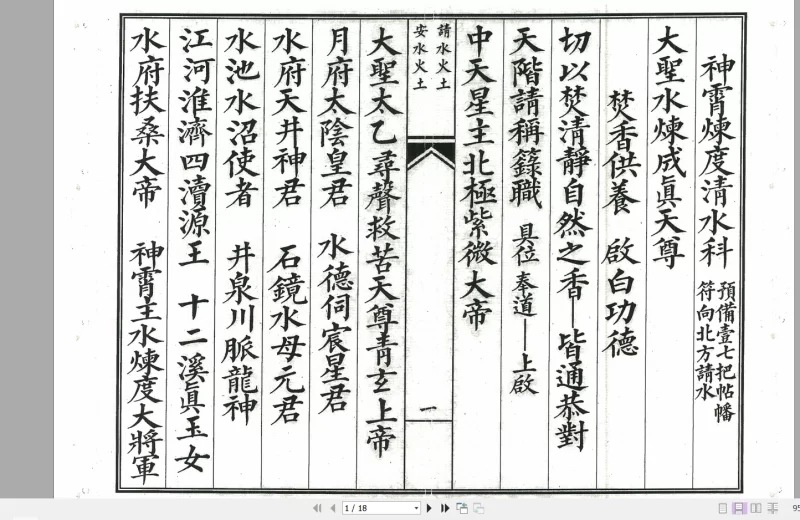 神霄煉度清水科 預備壹七把帖幡
符向北方請水
大聖水煉成眞天尊
焚香供養 啟白功德
切以焚清靜自然之香—皆通恭對
天階請稱籙職 具位 奉道—上啟
中天星主北極紫微大帝
請水火土
安水火土
一
大聖太乙尋聲救苦天尊青玄上帝
月府太陰皇君 水德伺宸星君
水府天井神君 石鏡水母元君
水池水沼使者 井泉川脈龍神
江河淮濟四瀆源王 十二溪眞玉女
水府扶桑大帝 神霄主水煉度大將軍
1 / 18
95